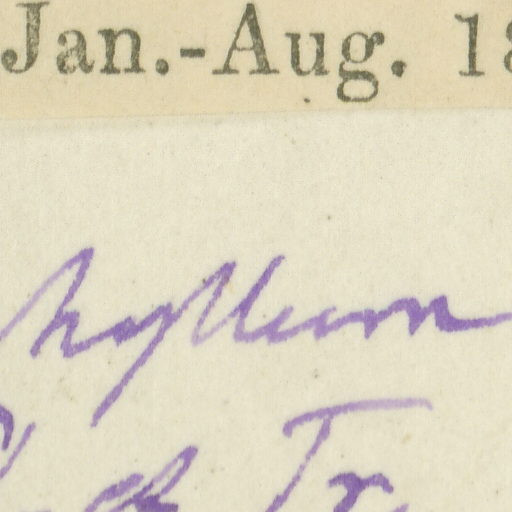 Jan.-Aug. 18
hyllum
& Tr